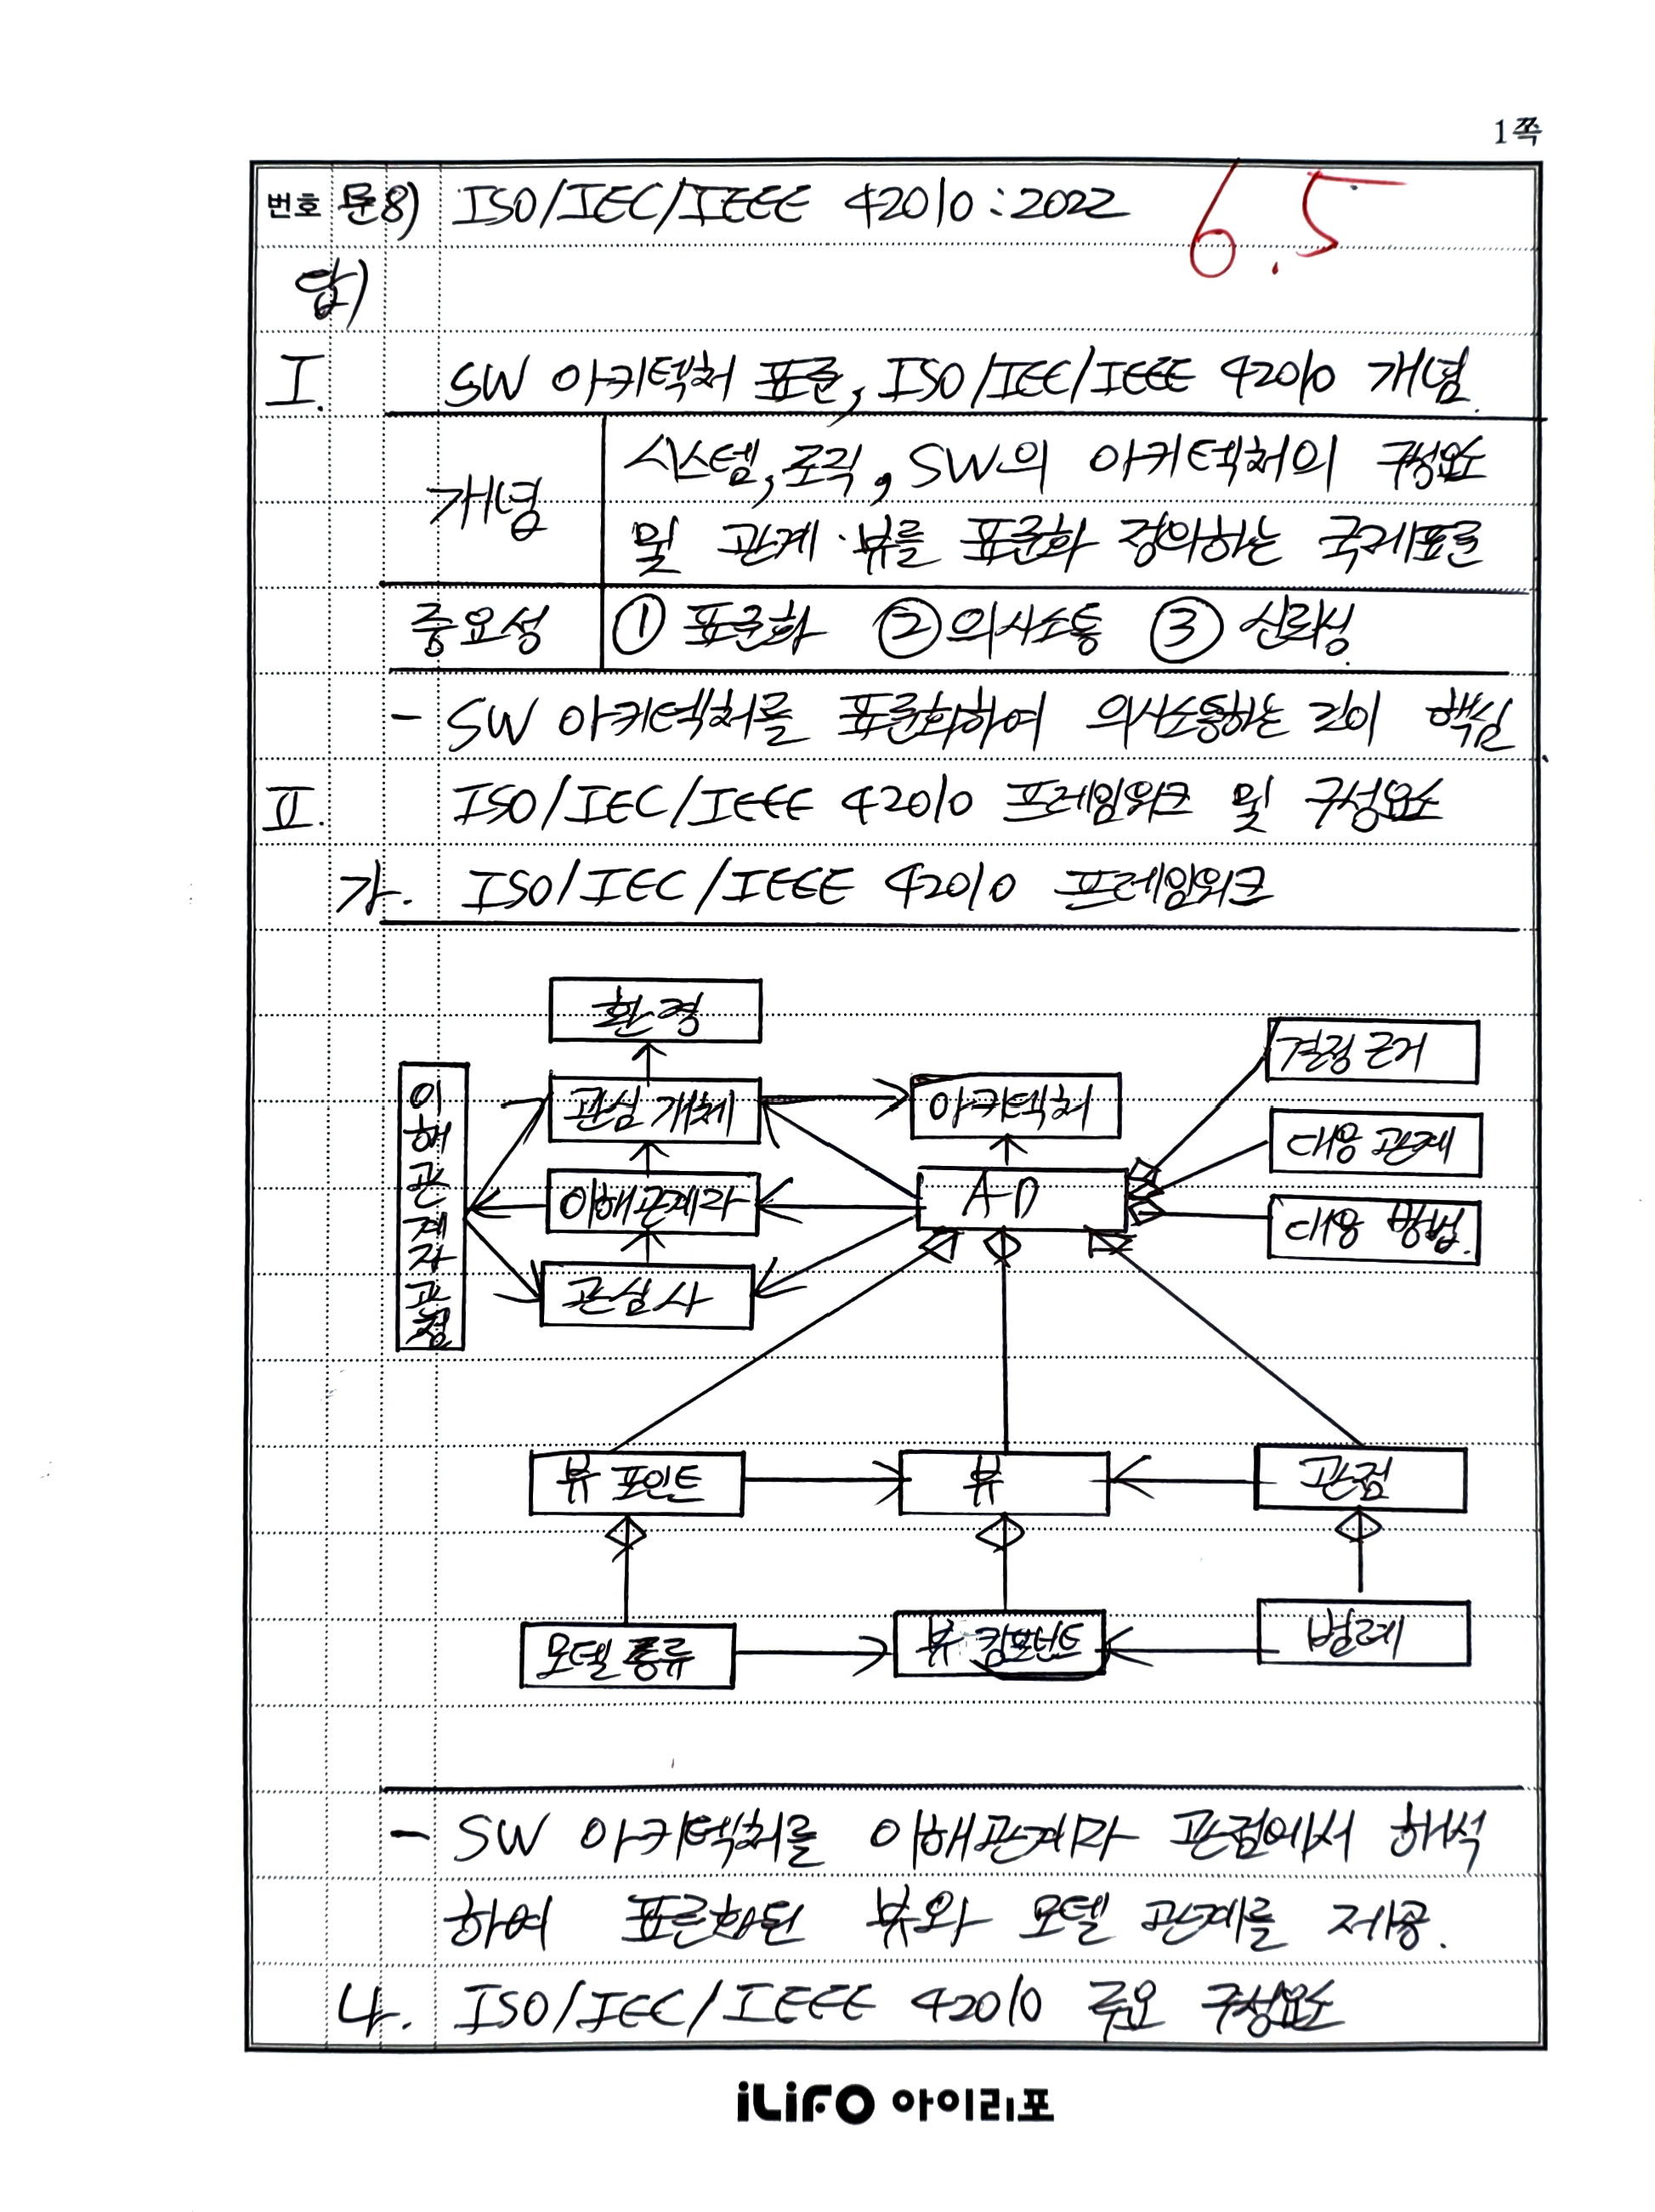 1쪽
번호 문8) ISO/IEC/IEEE 42010:2022
6.5
답)
I. SW 아키텍처 표준, ISO/IEC/IEEE 42010 개념.
개념
시스템, 로직, SW의 아키텍처의 구성요소
및 관계·뷰를 표준화 정의하는 국제표준
중요성 ① 표준화 ② 의사소통 ③ 신뢰성.
- SW 아키텍처를 표준화하여 의사소통하는 것이 핵심.
II. ISO/IEC/IEEE 42010 프레임워크 및 구성요소
가. ISO/IEC/IEEE 42010 프레임워크
환경
결정 근거
이해관계자관점
관심 개체
아키텍처
대응 관계
이해관계자
A-D
대응 방법.
관심사
뷰 포인트
뷰
관점
모델 종류
뷰 컴포넌트
범례
- SW 아키텍처를 이해관계자 관점에서 해석
하여 표준화된 뷰와 모델 관계를 제공.
나. ISO/IEC/IEEE 42010 주요 구성요소
iLiFO 아이리포